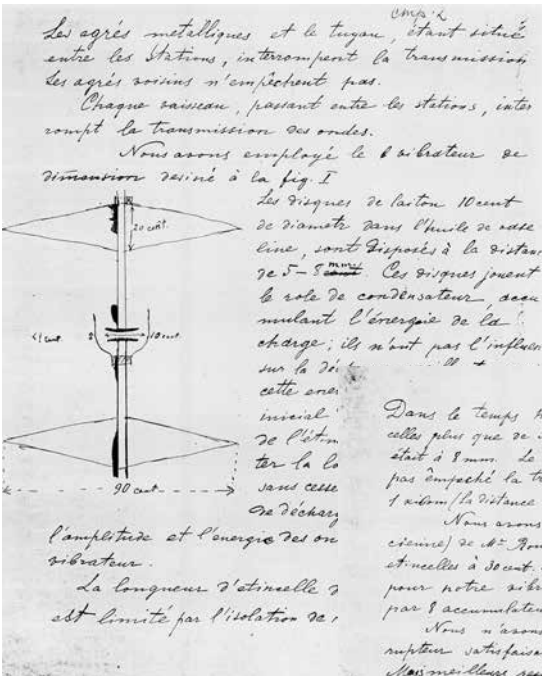 стр. 2
Les agrés métalliques et le tuyau, étant situé
entre les stations, interrompent la transmission
Les agrés voisins n'empêchent pas.
Chaque vaisseau, passant entre les stations, inter
rompt la transmission des ondes.
Nous avons employé le vibrateur de
dimension desiné à la fig. I
Les disques de laiton 10 cent
de diametr dans l'huile de vase
line, sont disposés à la distan
de 5-8 mm. Ces disques jouent
le role de condensateur, accu
mulant l'énergie de la
charge; ils n'ont pas l'influen
sur la dé
cette ener
inicial
de l'étin
ter la lo
sans cesse
de déchar
20 cent.
10 cent
90 cent
l'amplitude et l'energie des on
vibrateur.
La longueur d'etincelle
est limité par l'isolation de
Dans le temps
celles plus que de
était à 8 mm. Le
pas empeché la tr
1 kilom (la distance
Nous avons
cienne) de Mr
etincelles à 30 cent.
pour notre vibr
par 8 accumulateu
Nous n'avons
rupteur satisfaisa
Mais meilleurs